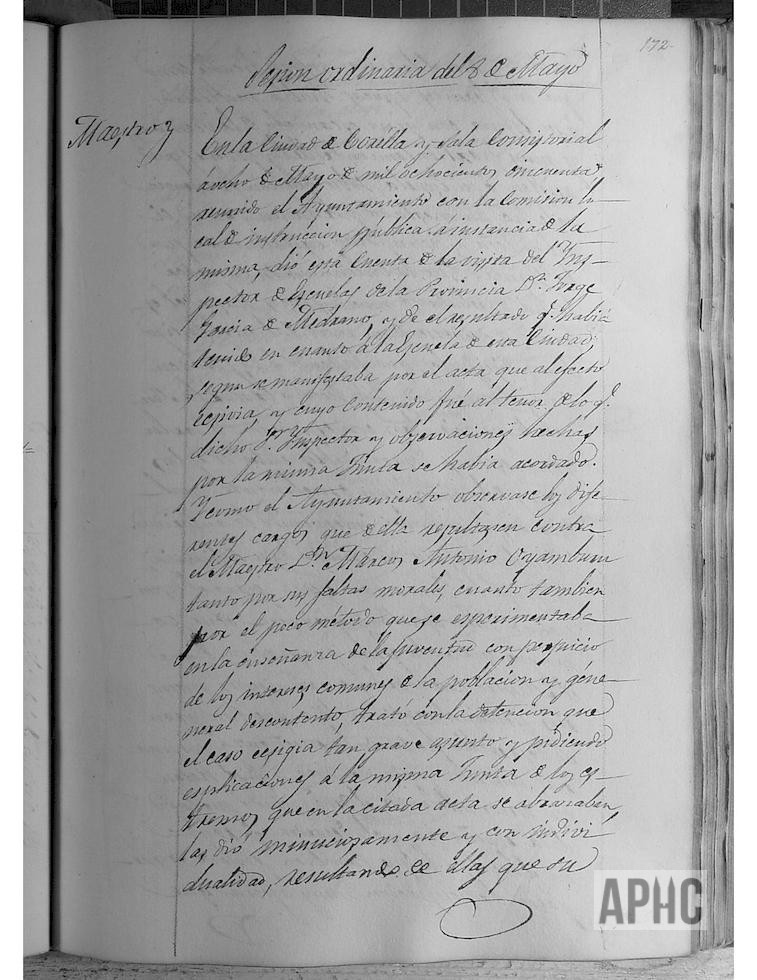 172
Sesion ordinaria del 8 de Mayo
Maestro
En la Ciudad de Corella y Sala Consistorial
á ocho de Mayo de mil ochocientos cincuenta,
reunido el Ayuntamiento con la Comision lo-
cal de instruccion pública á instancia de la
misma, dió esta Cuenta de la visita del Ins-
pector de Escuelas de la Provincia Dn. Jorge
Garcia de Medrano, y de el resultado q.e habia
tenido en cuanto á la Escuela de esta Ciudad,
segun se manifestaba por el acta, que al efecto
y cuyo contenido fué al tenor de lo q.e
dicho Sr. Inspector y observaciones hechas
por la misma Junta se habia acordado.
Y como el Ayuntamiento observase los dife-
rentes cargos que de ella resultasen contra
el Maestro Dn. Marcos Antonio Oyamburu
tanto por sus faltas morales, cuanto tambien
por el poco método que se esperimentaba
en la enseñanza de la juventud con perjuicio
de los intereses comunes de la poblacion y géne-
neral descontento, trató con la detencion que
el caso ecsigia tan grave asunto y pidiendo
esplicaciones á la misma Junta de los es-
tremos que en la citada acta se abrazaban,
las dió minuciosamente y con indivi-
dualidad, resultando de ellas que su
APHC